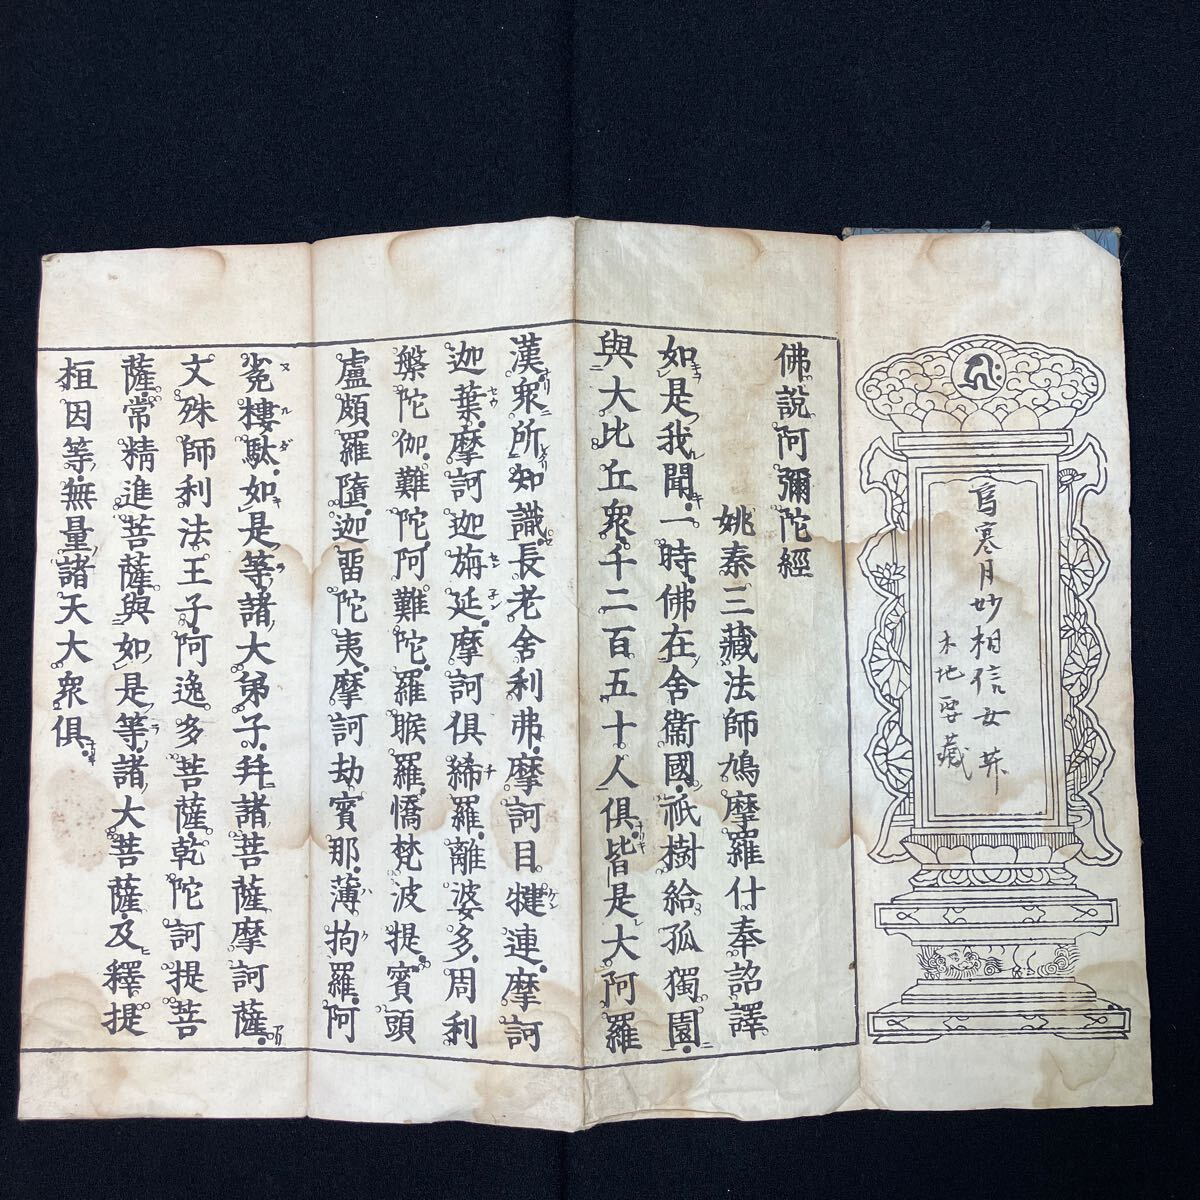 爲寒月妙相信女菩提
本地地藏
佛說阿彌陀經
姚秦三藏法師鳩摩羅什奉詔譯
如是我聞一時佛在舍衞國祇樹給孤獨園
與大比丘衆千二百五十人俱皆是大阿羅
漢衆所知識長老舍利弗摩訶目犍連摩訶
迦葉摩訶迦旃延摩訶俱絺羅離婆多周利
槃陀伽難陀阿難陀羅睺羅憍梵波提賓頭
盧頗羅墮迦留陀夷摩訶劫賓那薄拘羅阿
㝹樓馱如是等諸大弟子幷諸菩薩摩訶薩
文殊師利法王子阿逸多菩薩乾陀訶提菩
薩常精進菩薩與如是等諸大菩薩及釋提
桓因等無量諸天大衆俱